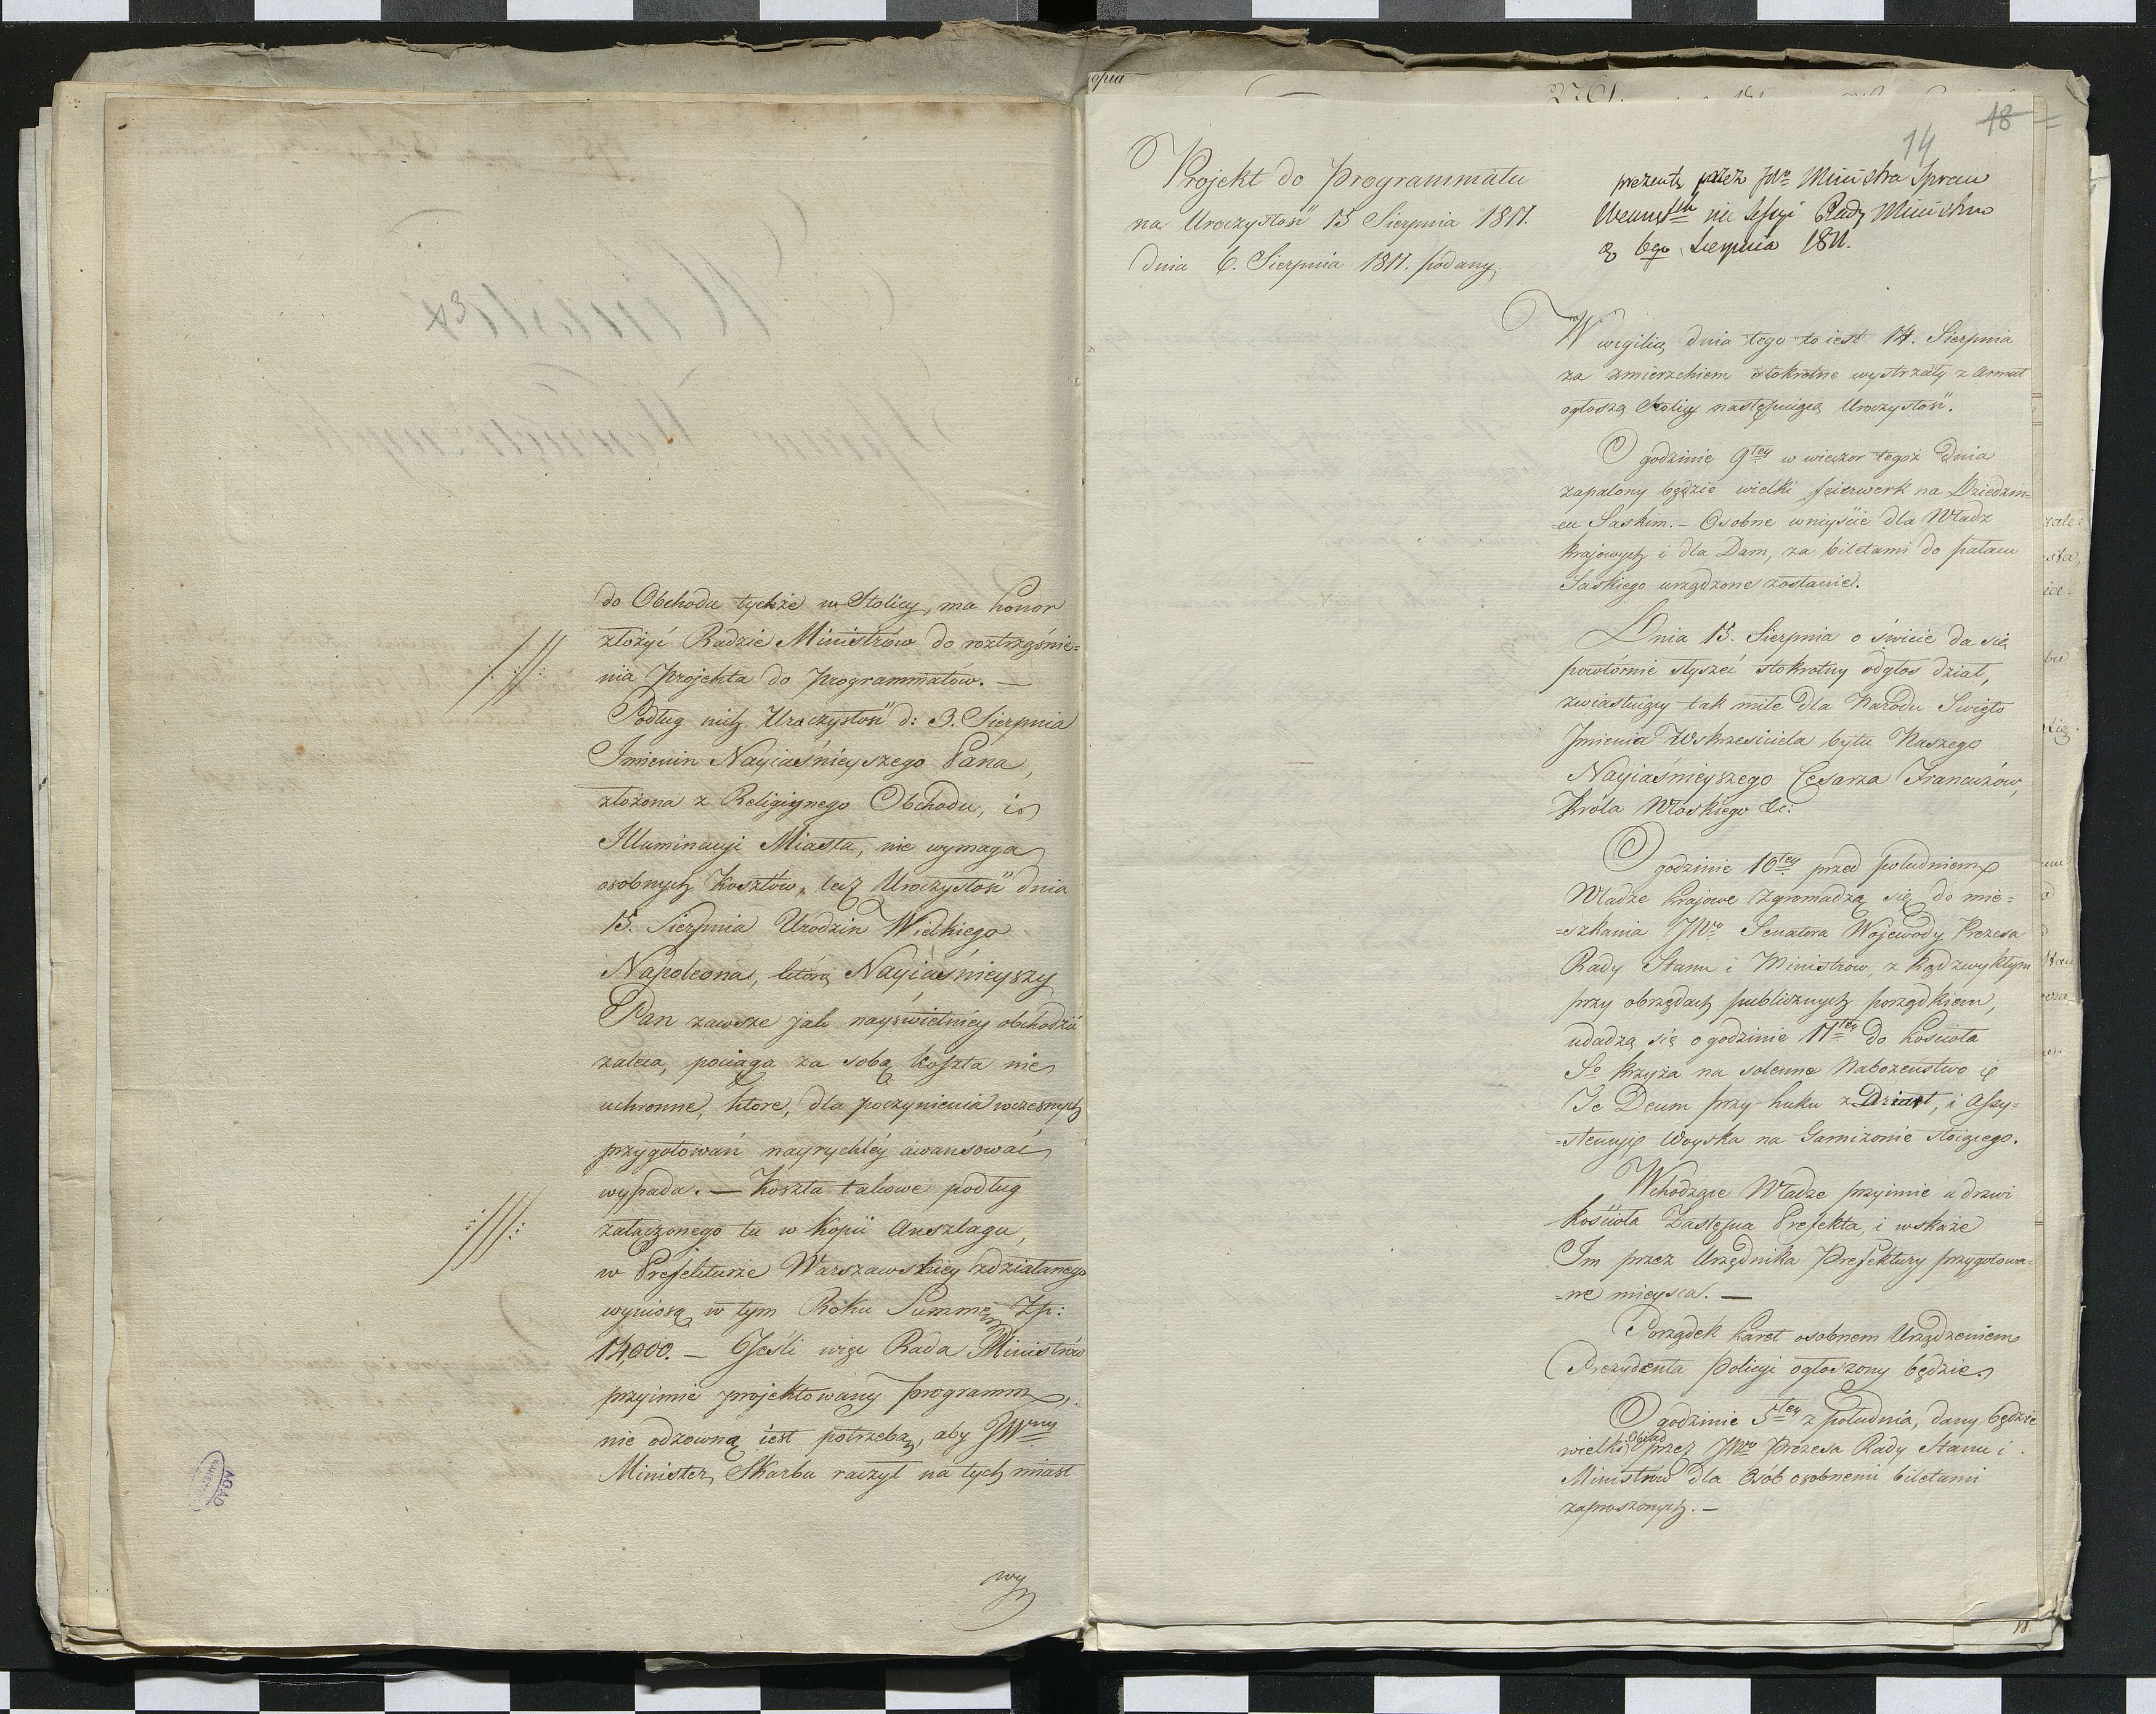 do Obchodu tychże w Stolicy, ma honor
złożyć Radzie Ministrów do roztrząśnie=
nia Projekta do Programmatów. —
Podług nich Uroczystość d: 3. Sierpnia
Imienin Nayiaśnieyszego Pana,
złożona z Religiynego Obchodu, i
Illuminacyi Miasta, nie wymaga
osobnych Kosztów, lecz Uroczystość dnia
15. Sierpnia Urodzin Wielkiego
Napoleona, którą Nayiaśnieyszy
Pan zawsze jak nayświetniey obchodzić
zaleca, pociąga za sobą koszta nie
uchronne, które, dla poczynienia wczesnych
przygotowań nayrychléy awansować
wypada. — Koszta takowe podług
załączonego tu w Kopii Anszlagu,
w Prefekturze Warszawskiey zdziałanego
wyniosą w tym Roku Summę Zp:
14,000. — Jeśli więc Rada Ministrów
przyimie projektowany programm,
nie odzowną iest potrzebą, aby JWny
Minister Skarbu raczył na tych miast
wy
AGAD
14
18
Projekt do Programmatu
na Uroczystość 15 Sierpnia 1811.
dnia 6. Sierpnia 1811. podany.
prezent: przez JWo Ministra Spraw
Wewnętch na Sessyi Rady Ministrów
d 6go Sierpnia 1811.
W wigilią dnia tego to iest 14. Sierpnia
za zmierzchiem stokrotne wystrzały z Armat
ogłoszą Stolicy następuiącą Uroczystość.
O godzinie 9tey w wieczor tegoż dnia
zapalony będzie wielki feierwerk na Dziedziń=
=cu Saskim. — Osobne wniyście dla Władz
Krajowych i dla Dam, za biletami do pałacu
Saskiego urządzone zostanie.
Dnia 15. Sierpnia o świcie da się
powtórnie słyszeć stokrotny odgłos dział,
zwiastuiący tak miłe dla Narodu Swięto
Jmienia Wskrzesiciela bytu Naszego
Nayiaśnieyszego Cesarza Francuzów,
Króla Włoskiego &c:
O godzinie 10tey przed południem
Władze Krajowe zgromadzą się do mie=
=szkania JWo Senatora Wojewody Prezesa
Rady Stanu i Ministrow, z kąd zwykłym
przy obrzędach publicznych porządkiem,
udadzą się o godzinie 11tey do Kościoła
So Krzyża na solenne Nabożeństwo i
Te Deum przy huku z Dział, i Assy=
=stencyi Woyska na Garnizonie stoiącego.
Wchodzące Władze przyimie u drzwi
Kościoła Zastępca Prefekta, i wskaże
Im przez Urzędnika Prefektury przygotowa=
=ne mieysca. —
Porządek karet osobnem Urządzeniem
Prezydenta Policyi ogłoszony będzie.
O godzinie 5tey z południa, dany będzie
wielki Obiad przez JWo Prezesa Rady Stanu i
Ministrów dla Osób osobnemi biletami
zaproszonych. —